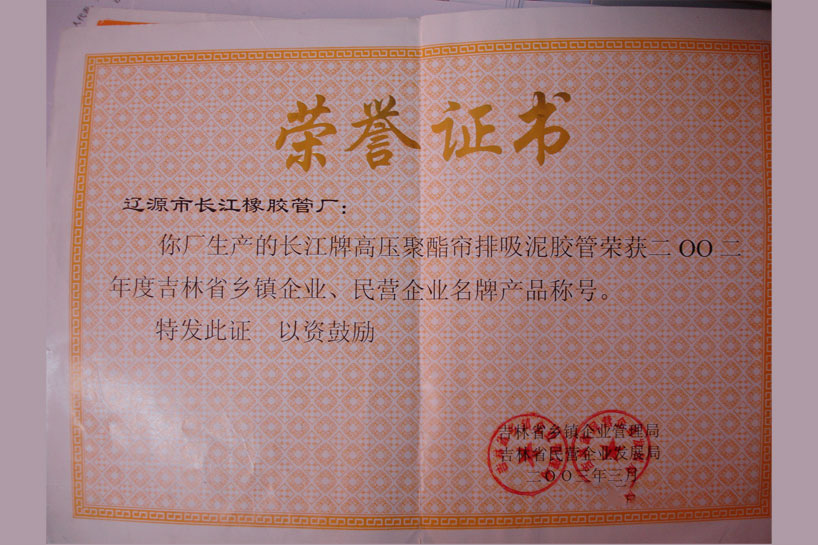 荣誉证书
辽源市长江橡胶管厂：
你厂生产的长江牌高压聚酯帘排吸泥胶管荣获二OO二
年度吉林省乡镇企业、民营企业名牌产品称号。
特发此证 以资鼓励
吉林省乡镇企业管理局
吉林省民营企业发展局
二OO三年三月